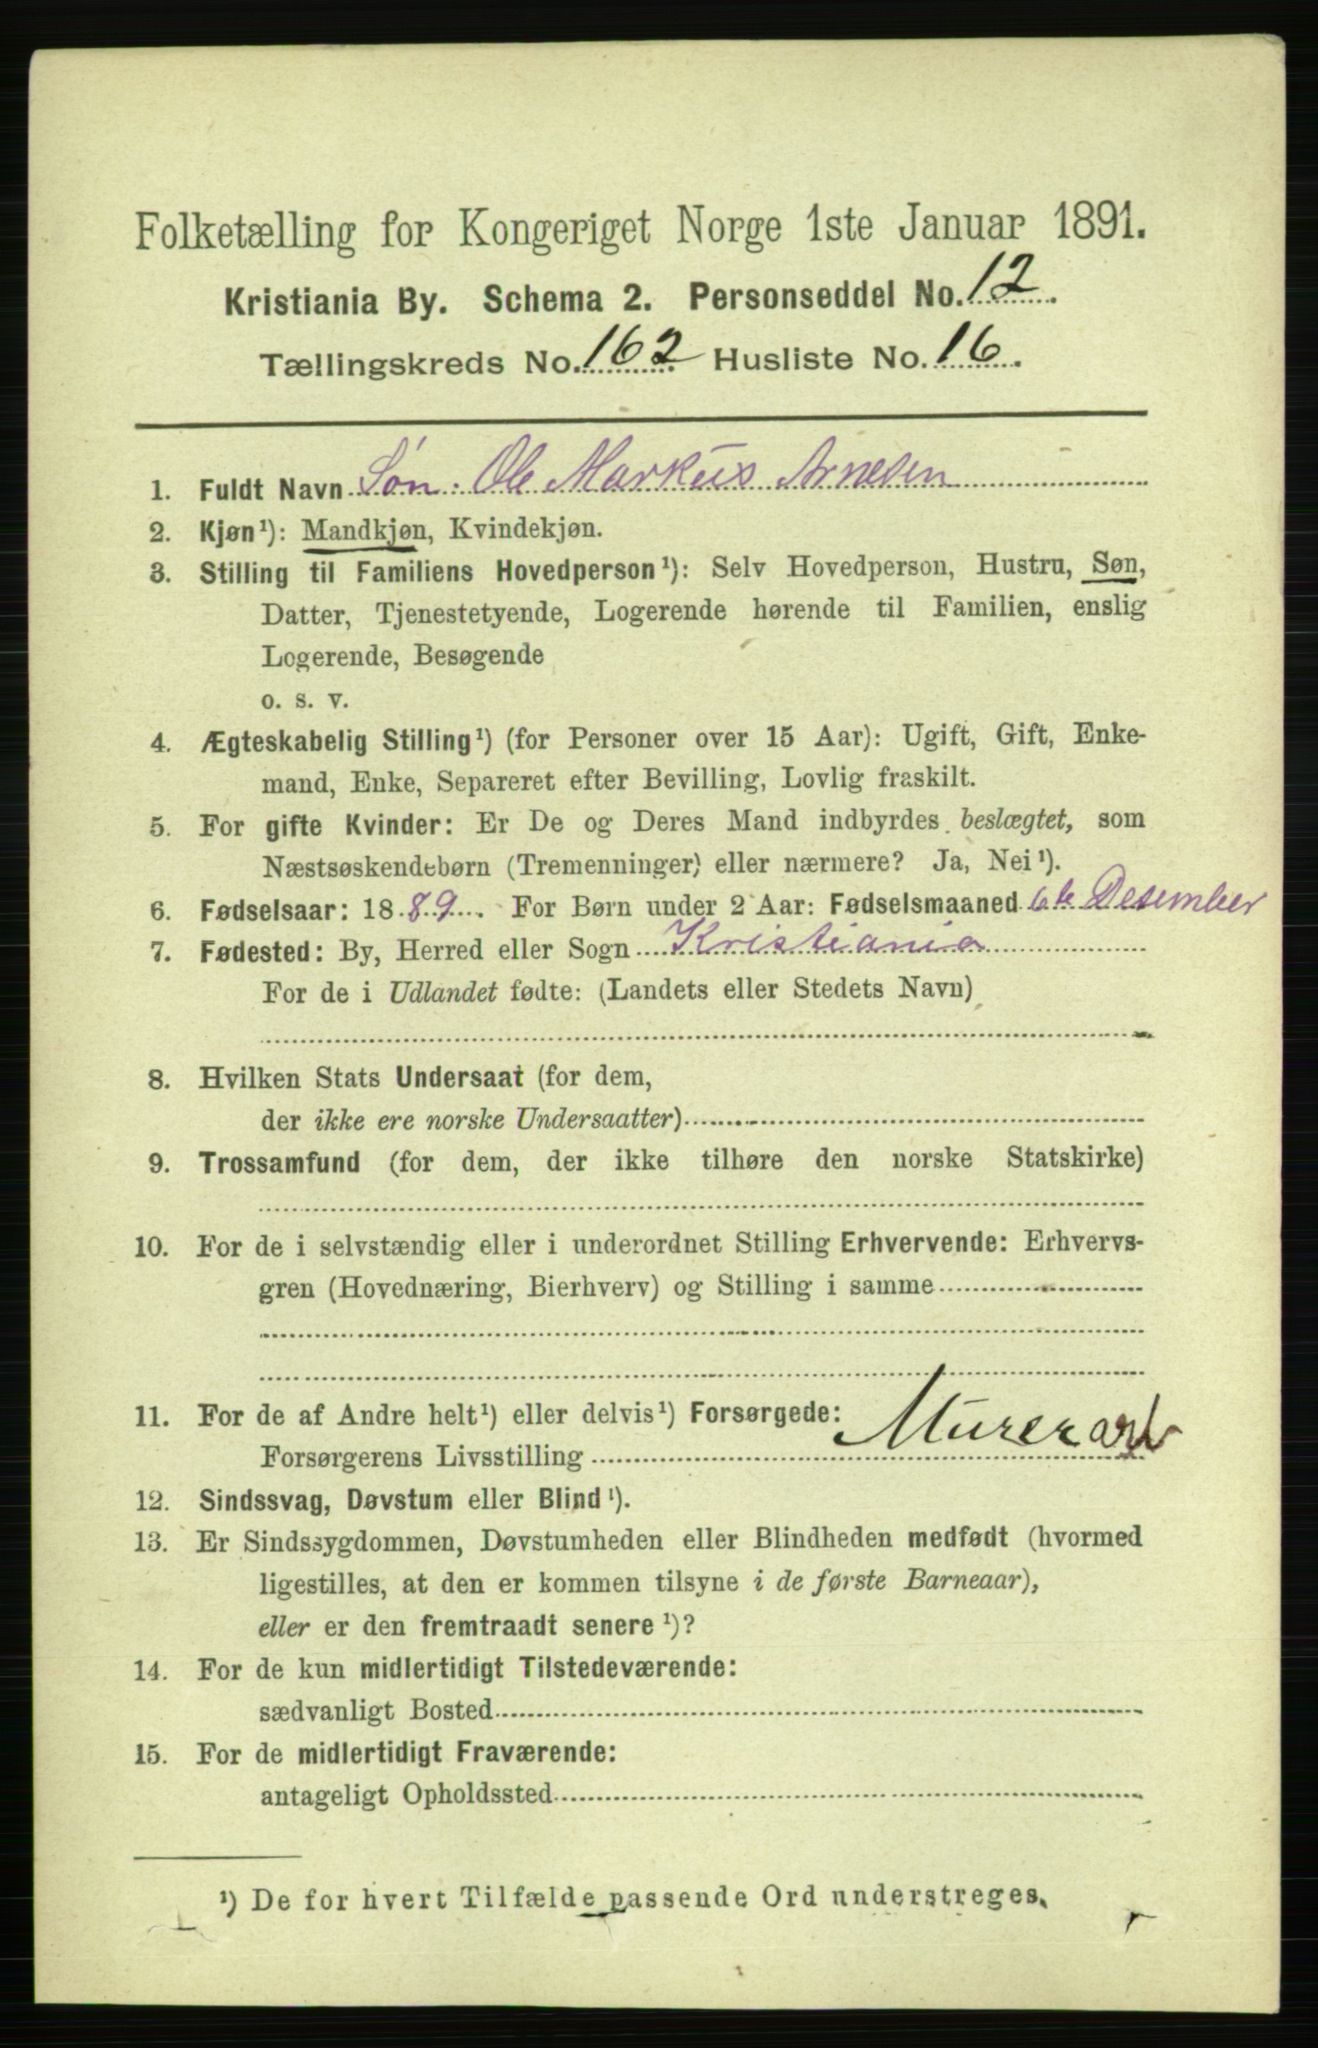 Folketælling for Kongeriget Norge 1ste Januar 1891.
Kristiania By. Schema 2. Personseddel No. 12.
Tællingskreds No. 162. Husliste No. 16.
1. Fuldt Navn Søn. Ole Markus Arnesen
2. Kjøn¹): Mandkjøn, Kvindekjøn.
3. Stilling til Familiens Hovedperson¹): Selv Hovedperson, Hustru, Søn,
Datter, Tjenestetyende, Logerende hørende til Familien, enslig
Logerende, Besøgende
o. s. v.
4. Ægteskabelig Stilling¹) (for Personer over 15 Aar): Ugift, Gift, Enke-
mand, Enke, Separeret efter Bevilling, Lovlig fraskilt.
5. For gifte Kvinder: Er De og Deres Mand indbyrdes beslægtet, som
Næstsøskendebørn (Tremenninger) eller nærmere? Ja, Nei¹).
6. Fødselsaar: 1889. For Børn under 2 Aar: Fødselsmaaned 6te Desember
7. Fødested: By, Herred eller Sogn Kristiania
For de i Udlandet fødte: (Landets eller Stedets Navn)
8. Hvilken Stats Undersaat (for dem,
der ikke ere norske Undersaatter)
9. Trossamfund (for dem, der ikke tilhøre den norske Statskirke)
10. For de i selvstændig eller i underordnet Stilling Erhvervende: Erhvervs-
gren (Hovednæring, Bierhverv) og Stilling i samme
11. For de af Andre helt¹) eller delvis¹) Forsørgede:
Forsørgerens Livsstilling Murerarb
12. Sindssvag, Døvstum eller Blind¹).
13. Er Sindssygdommen, Døvstumheden eller Blindheden medfødt (hvormed
ligestilles, at den er kommen tilsyne i de første Barneaar),
eller er den fremtraadt senere¹)?
14. For de kun midlertidigt Tilstedeværende:
sædvanligt Bosted
15. For de midlertidigt Fraværende:
antageligt Opholdssted
¹) De for hvert Tilfælde passende Ord understreges.